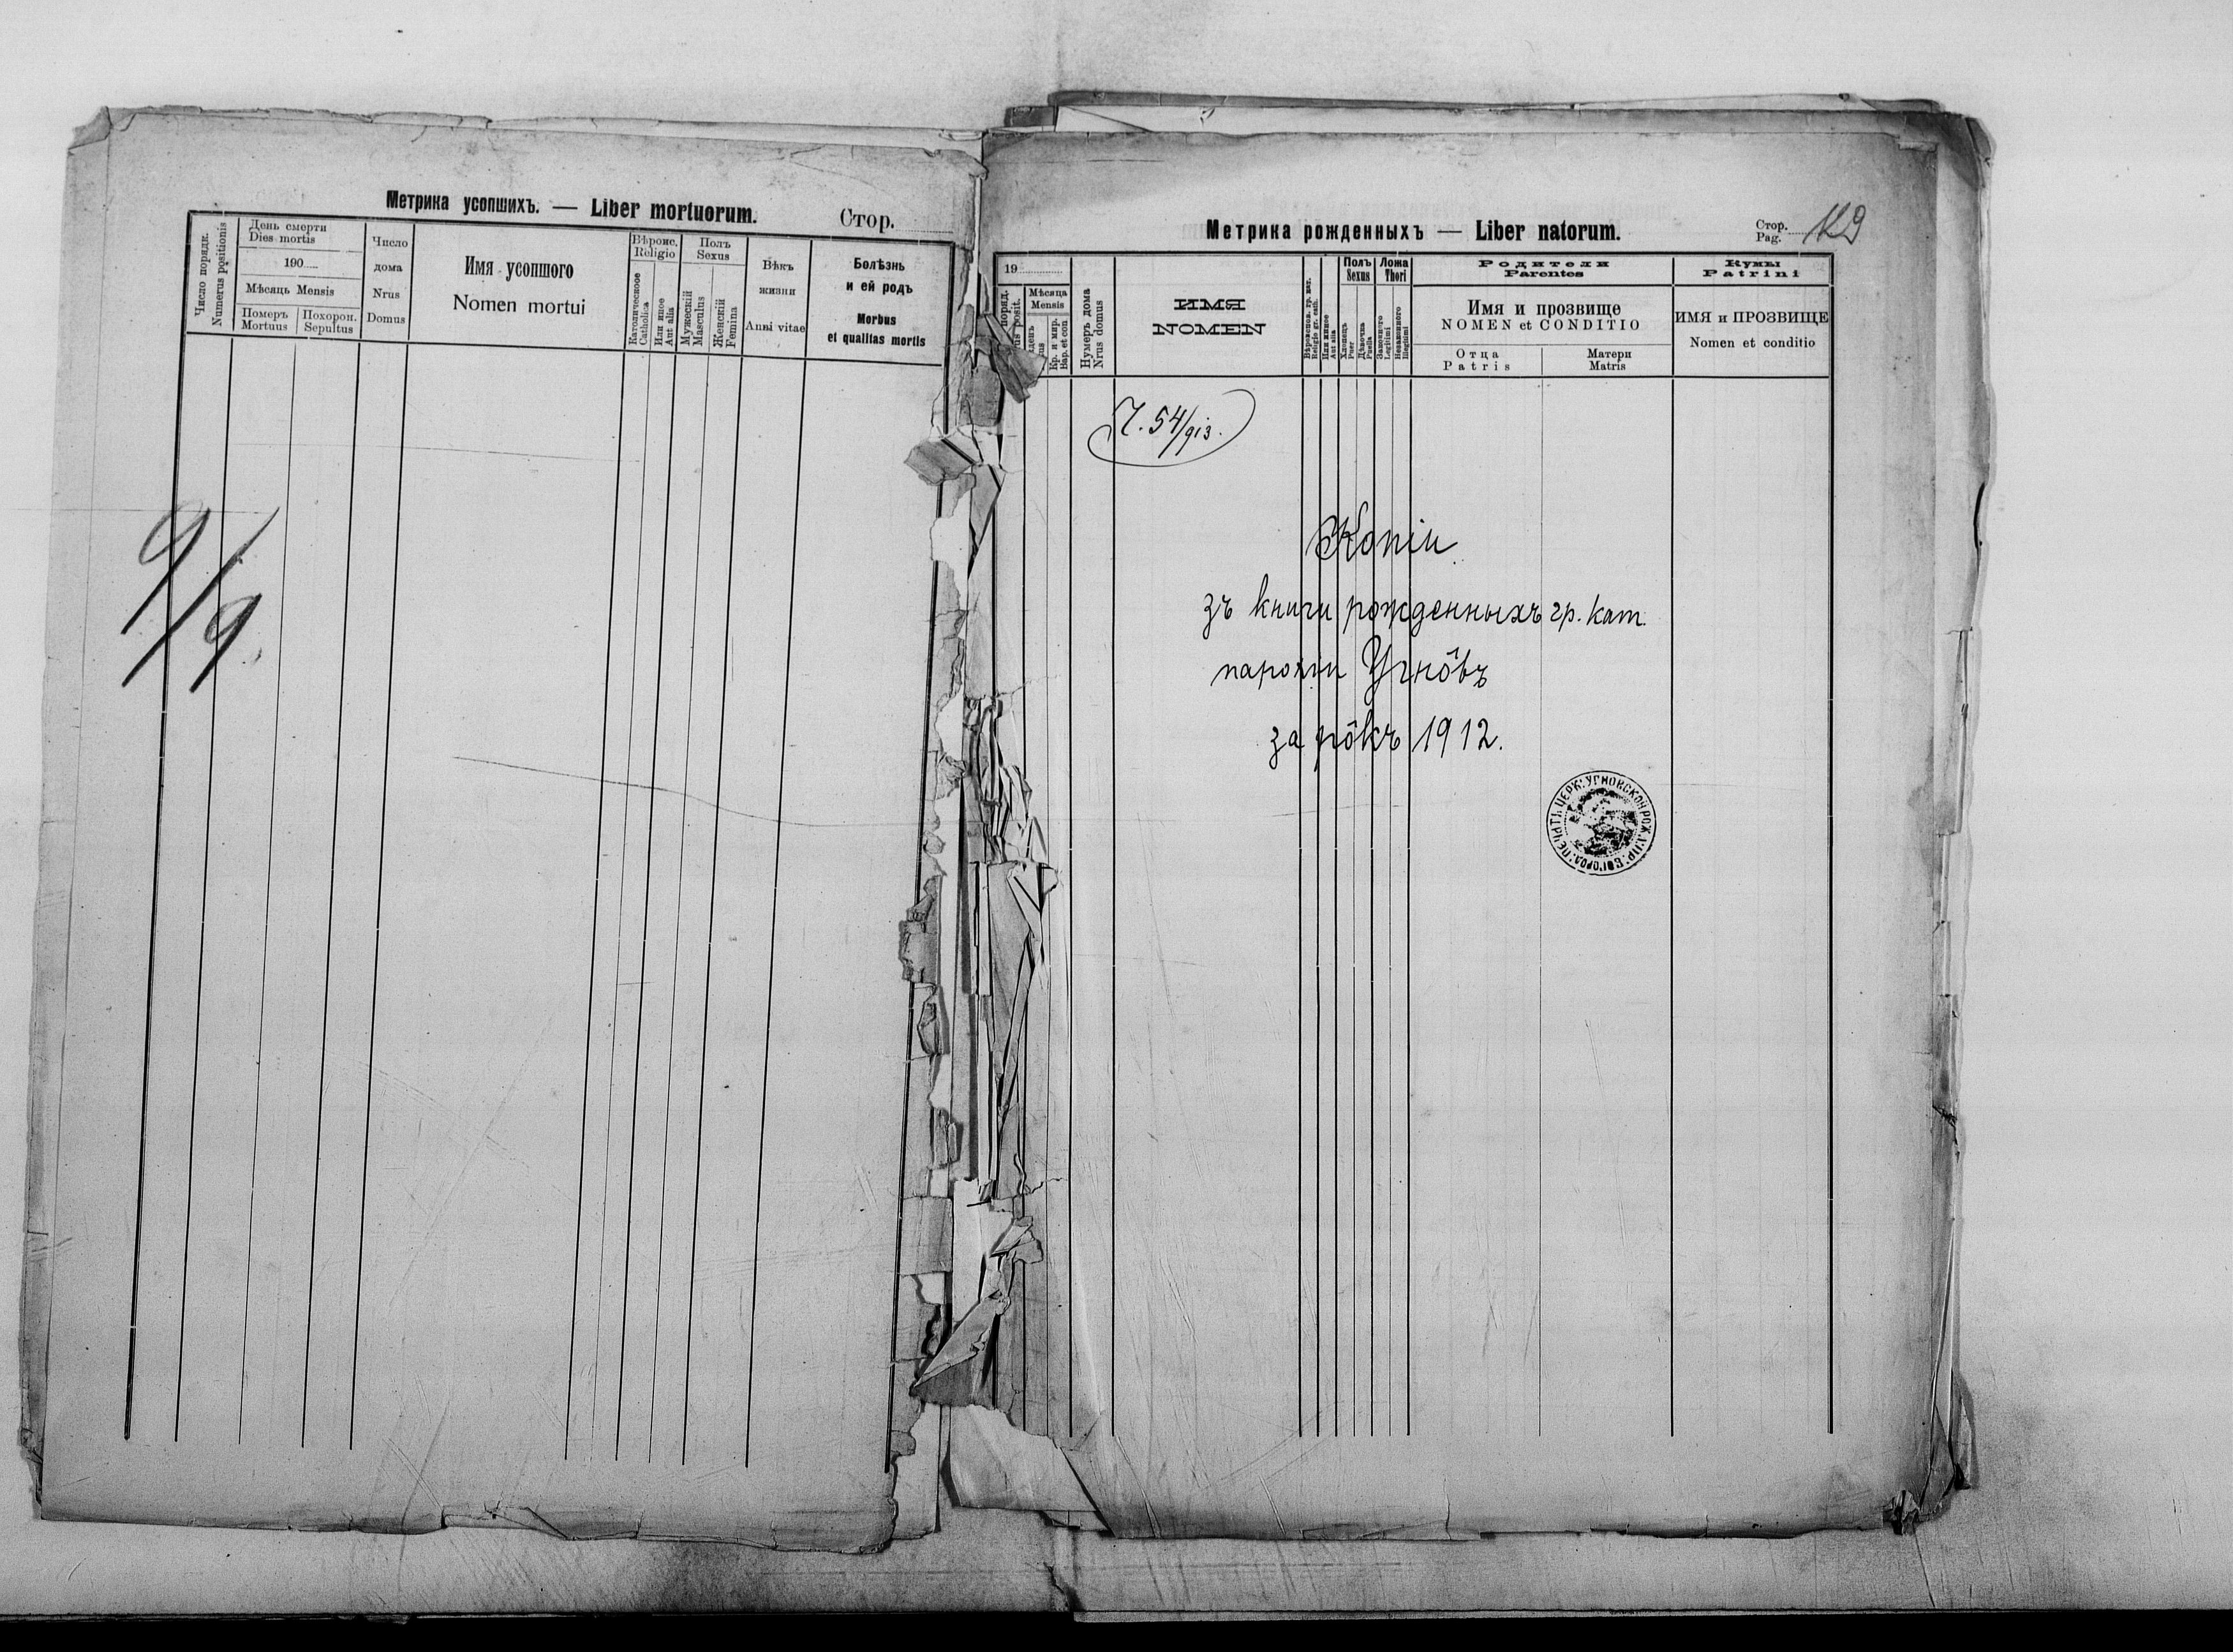 Метрика усопшихъ. — Liber mortuorum.
Стор.
Число порядк.
Numerus positionis
День смерти
Dies mortis
190
Мѣсяць Mensis
Померъ
Mortuus
Похорон.
Sepultus
Число
дома
Nrus
Domus
Имя усопшого
Nomen mortui
Вѣроис.
Religio
Католическое
Catholica
Или иное
Aut alia
Полъ
Sexus
Мужескій
Masculus
Женскій
Femina
Вѣкъ
жизни
Anni vitae
Болѣзнь
и ей родъ
Morbus
et qualitas mortis
9/9.
Метрика рожденныхъ — Liber natorum.
Стор.
Pag.
19
поряд.
posit.
Мѣсяца
Mensis
Кр. и мир.
Bap. et con
Нумеръ дома
Nrus domus
ИМЯ
NOMEN
Вѣроиспов. гр. кат.
Religio gr. cath.
Или инное
Aut alia
Полъ
Sexus
Хлопець
Puer
Дѣвочка
Puella
Ложа
Thori
Законного
Legitimi
Незаконного
Illegitimi
Родители
Parentes
Имя и прозвище
NOMEN et CONDITIO
Отца
Patris
Матери
Matris
Кумы
Patrini
ИМЯ и ПРОЗВИЩЕ
Nomen et conditio
Ч. 54/913.
Копіи
зъ книги рожденныхъ гр. кат.
парохіи Угнôвъ
за рôкъ 1912.
ПЕЧАТЬ ЦЕРК. УГНОВСКОЙ РОЖ. ПР. БОГОРОД.